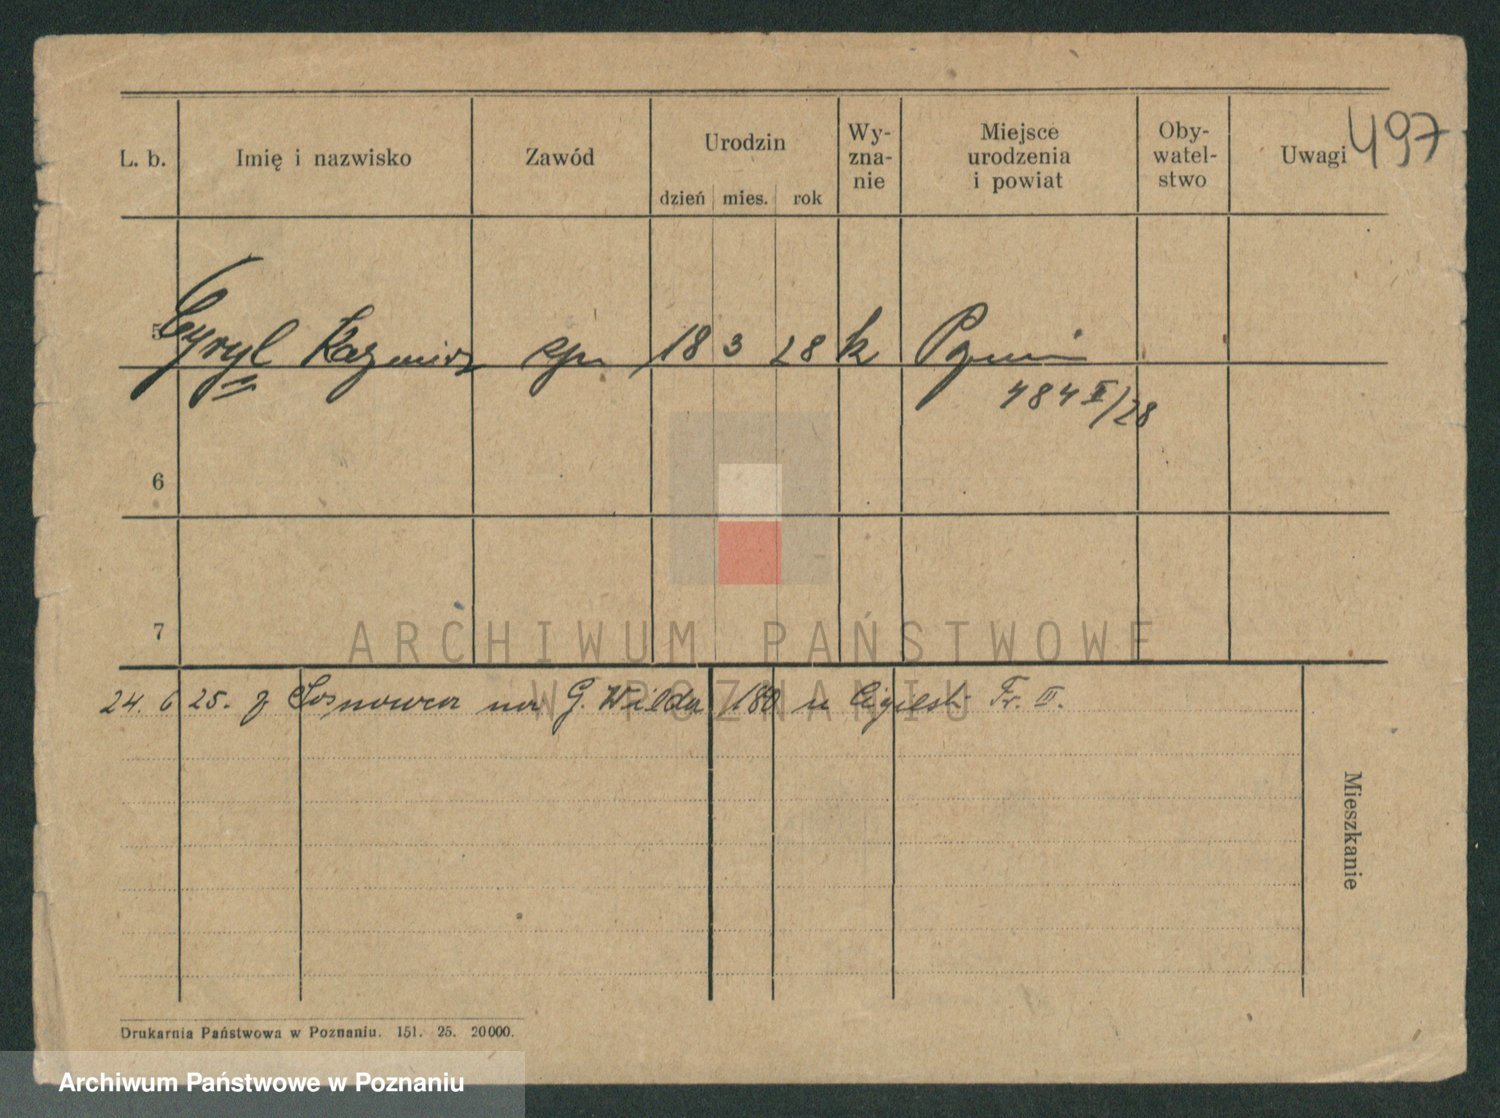 497
L. b. Imię i nazwisko Zawód Urodzin Wy-zna-nie Miejsce urodzenia i powiat Oby-watel-stwo Uwagi
dzień mies. rok
5 Cyryl Kazimierz 18 3 28 k
484 II/28
6
7
ARCHIWUM PAŃSTWOWE
W POZNANIU
24. 6 25. z Sosnowca na G. Wilda 180 u Fr. II.
Mieszkanie
Drukarnia Państwowa w Poznaniu. 151. 25. 20000.
Archiwum Państwowe w Poznaniu